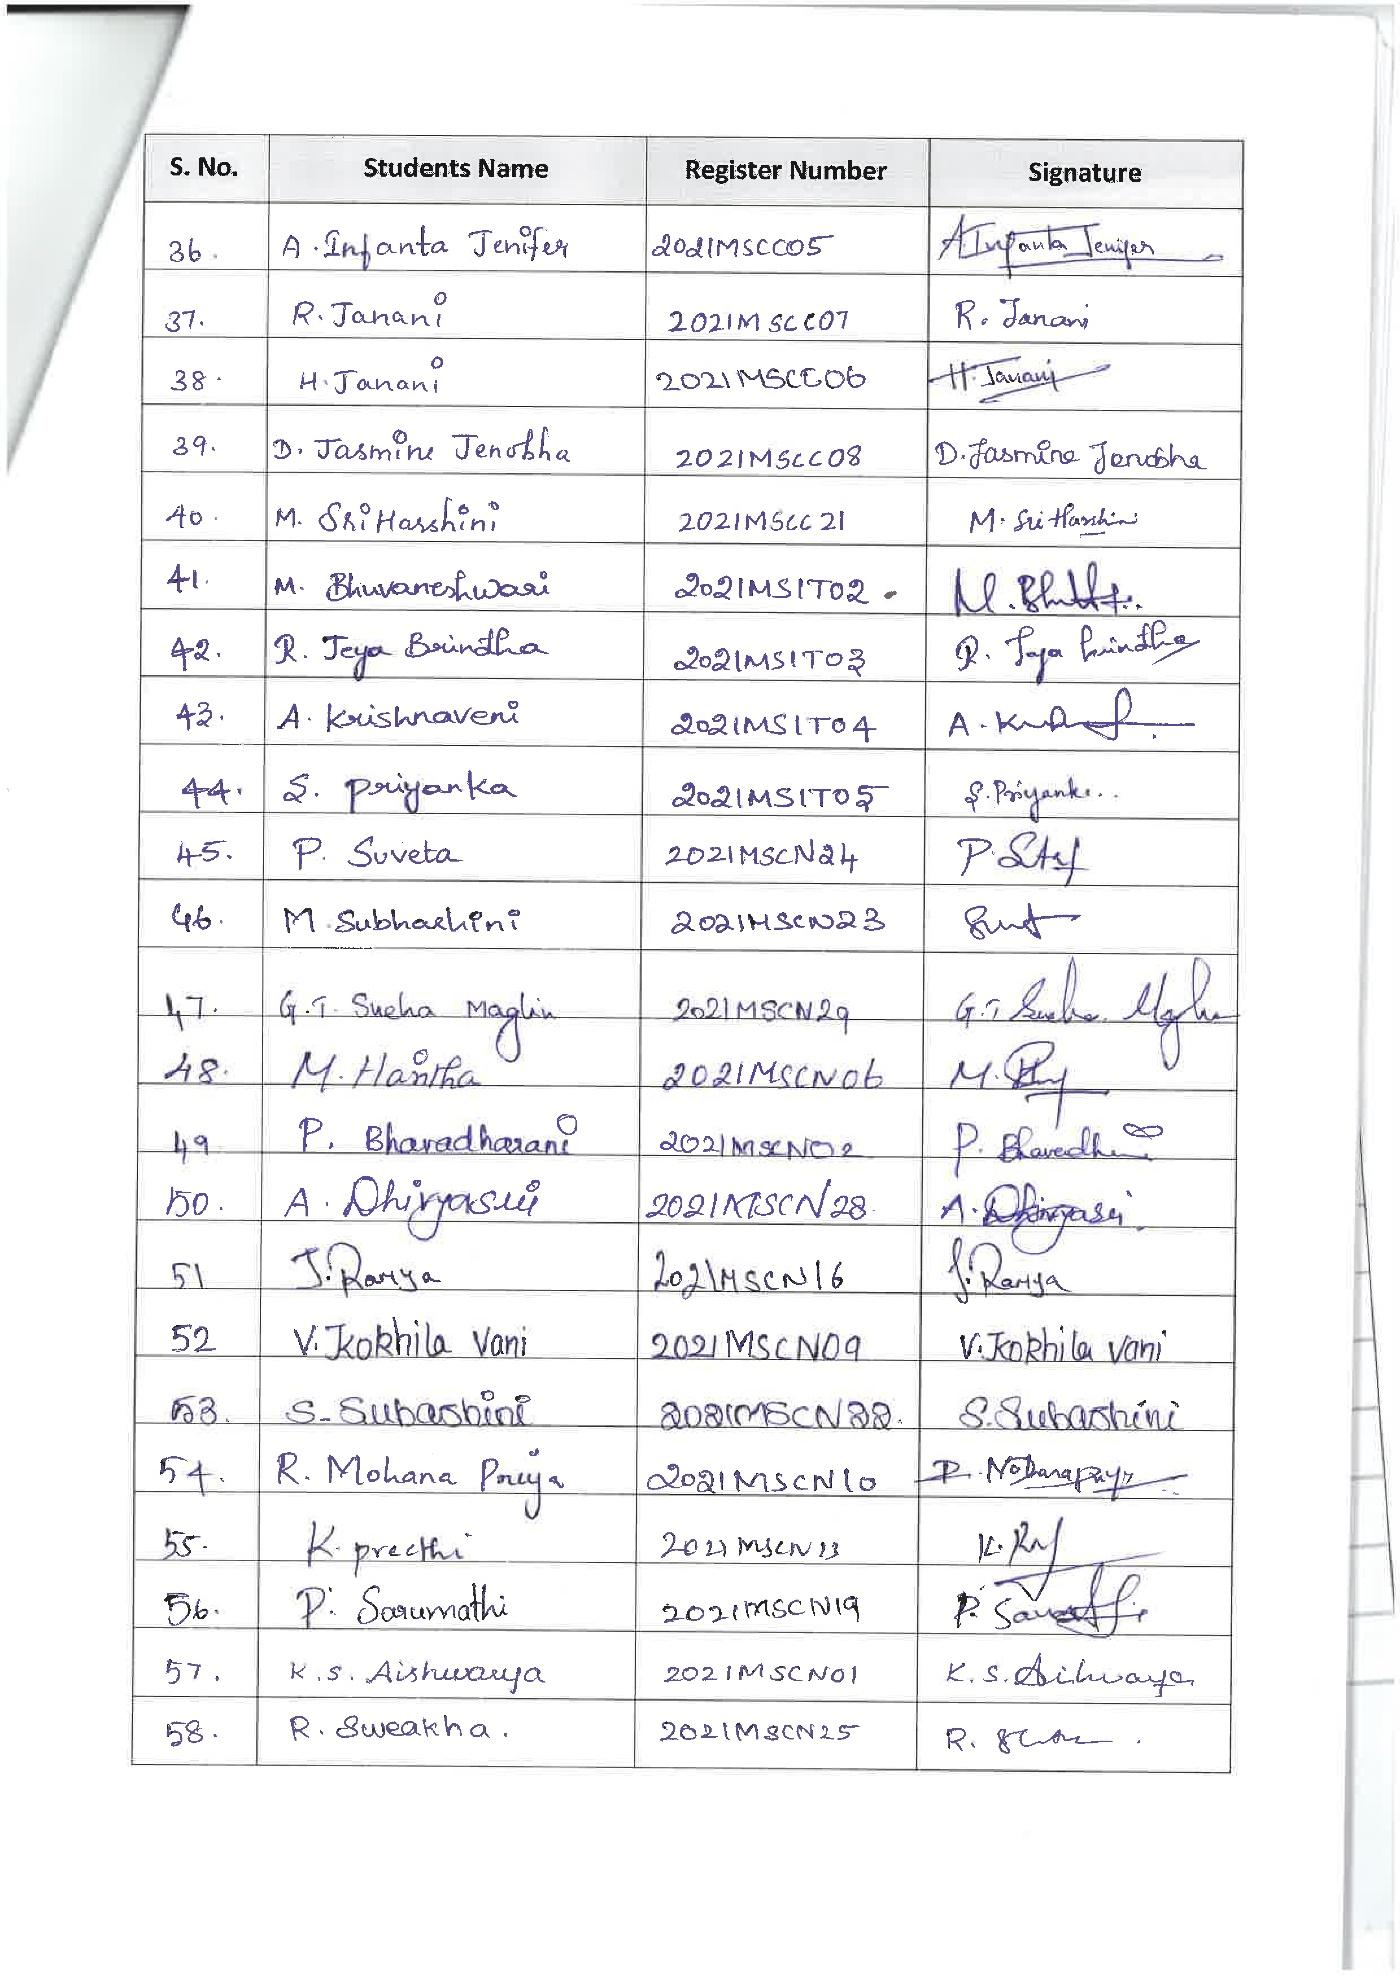 S. No. Students Name Register Number Signature
36. A. Infanta Jenifer 2021MSCC05 A Infanta Jenifer
37. R. Janani 2021MSCC07 R. Janani
38. H. Janani 2021MSCC06 H. Janani
39. D. Jasmine Jenobha 2021MSCC08 D. Jasmine Jenobha
40. M. SriHarshini 2021MSCC21 M. SriHarshini
41. M. Bhuvaneshwari 2021MSIT02 M.
42. R. Jeya Brindha 2021MSIT03 R. Jeya brindha
43. A. Krishnaveni 2021MSIT04 A.
44. S. Priyanka 2021MSIT05 S. Priyanka..
45. P. Suveta 2021MSCN24 P.
46. M. Subhashini 2021MSCN23
47. G.T. Sneha Maglin 2021MSCN29 G.T Sneha
48. M. Haritha 2021MSCN06 M.
49 P. Bharadharani 2021MSCN02 P.
50. A. Dhivyasri 2021MSCN28. A. Dhivyasri.
51 J. Ramya 2021MSCN16 J. Ramya
52 V. Kokhila Vani 2021MSCN09 V. Kokhila Vani
53. S. Subashini 2021MSCN22. S. Subashini
54. R. Mohana Priya 2021MSCN10 R.
55. K. preethi 2021MSCN13 K.
56. P. Sarumathi 2021MSCN19 P.
57. K.S. Aishwarya 2021MSCN01 K.S. Aishwarya
58. R. Sweakha. 2021MSCN25 R.